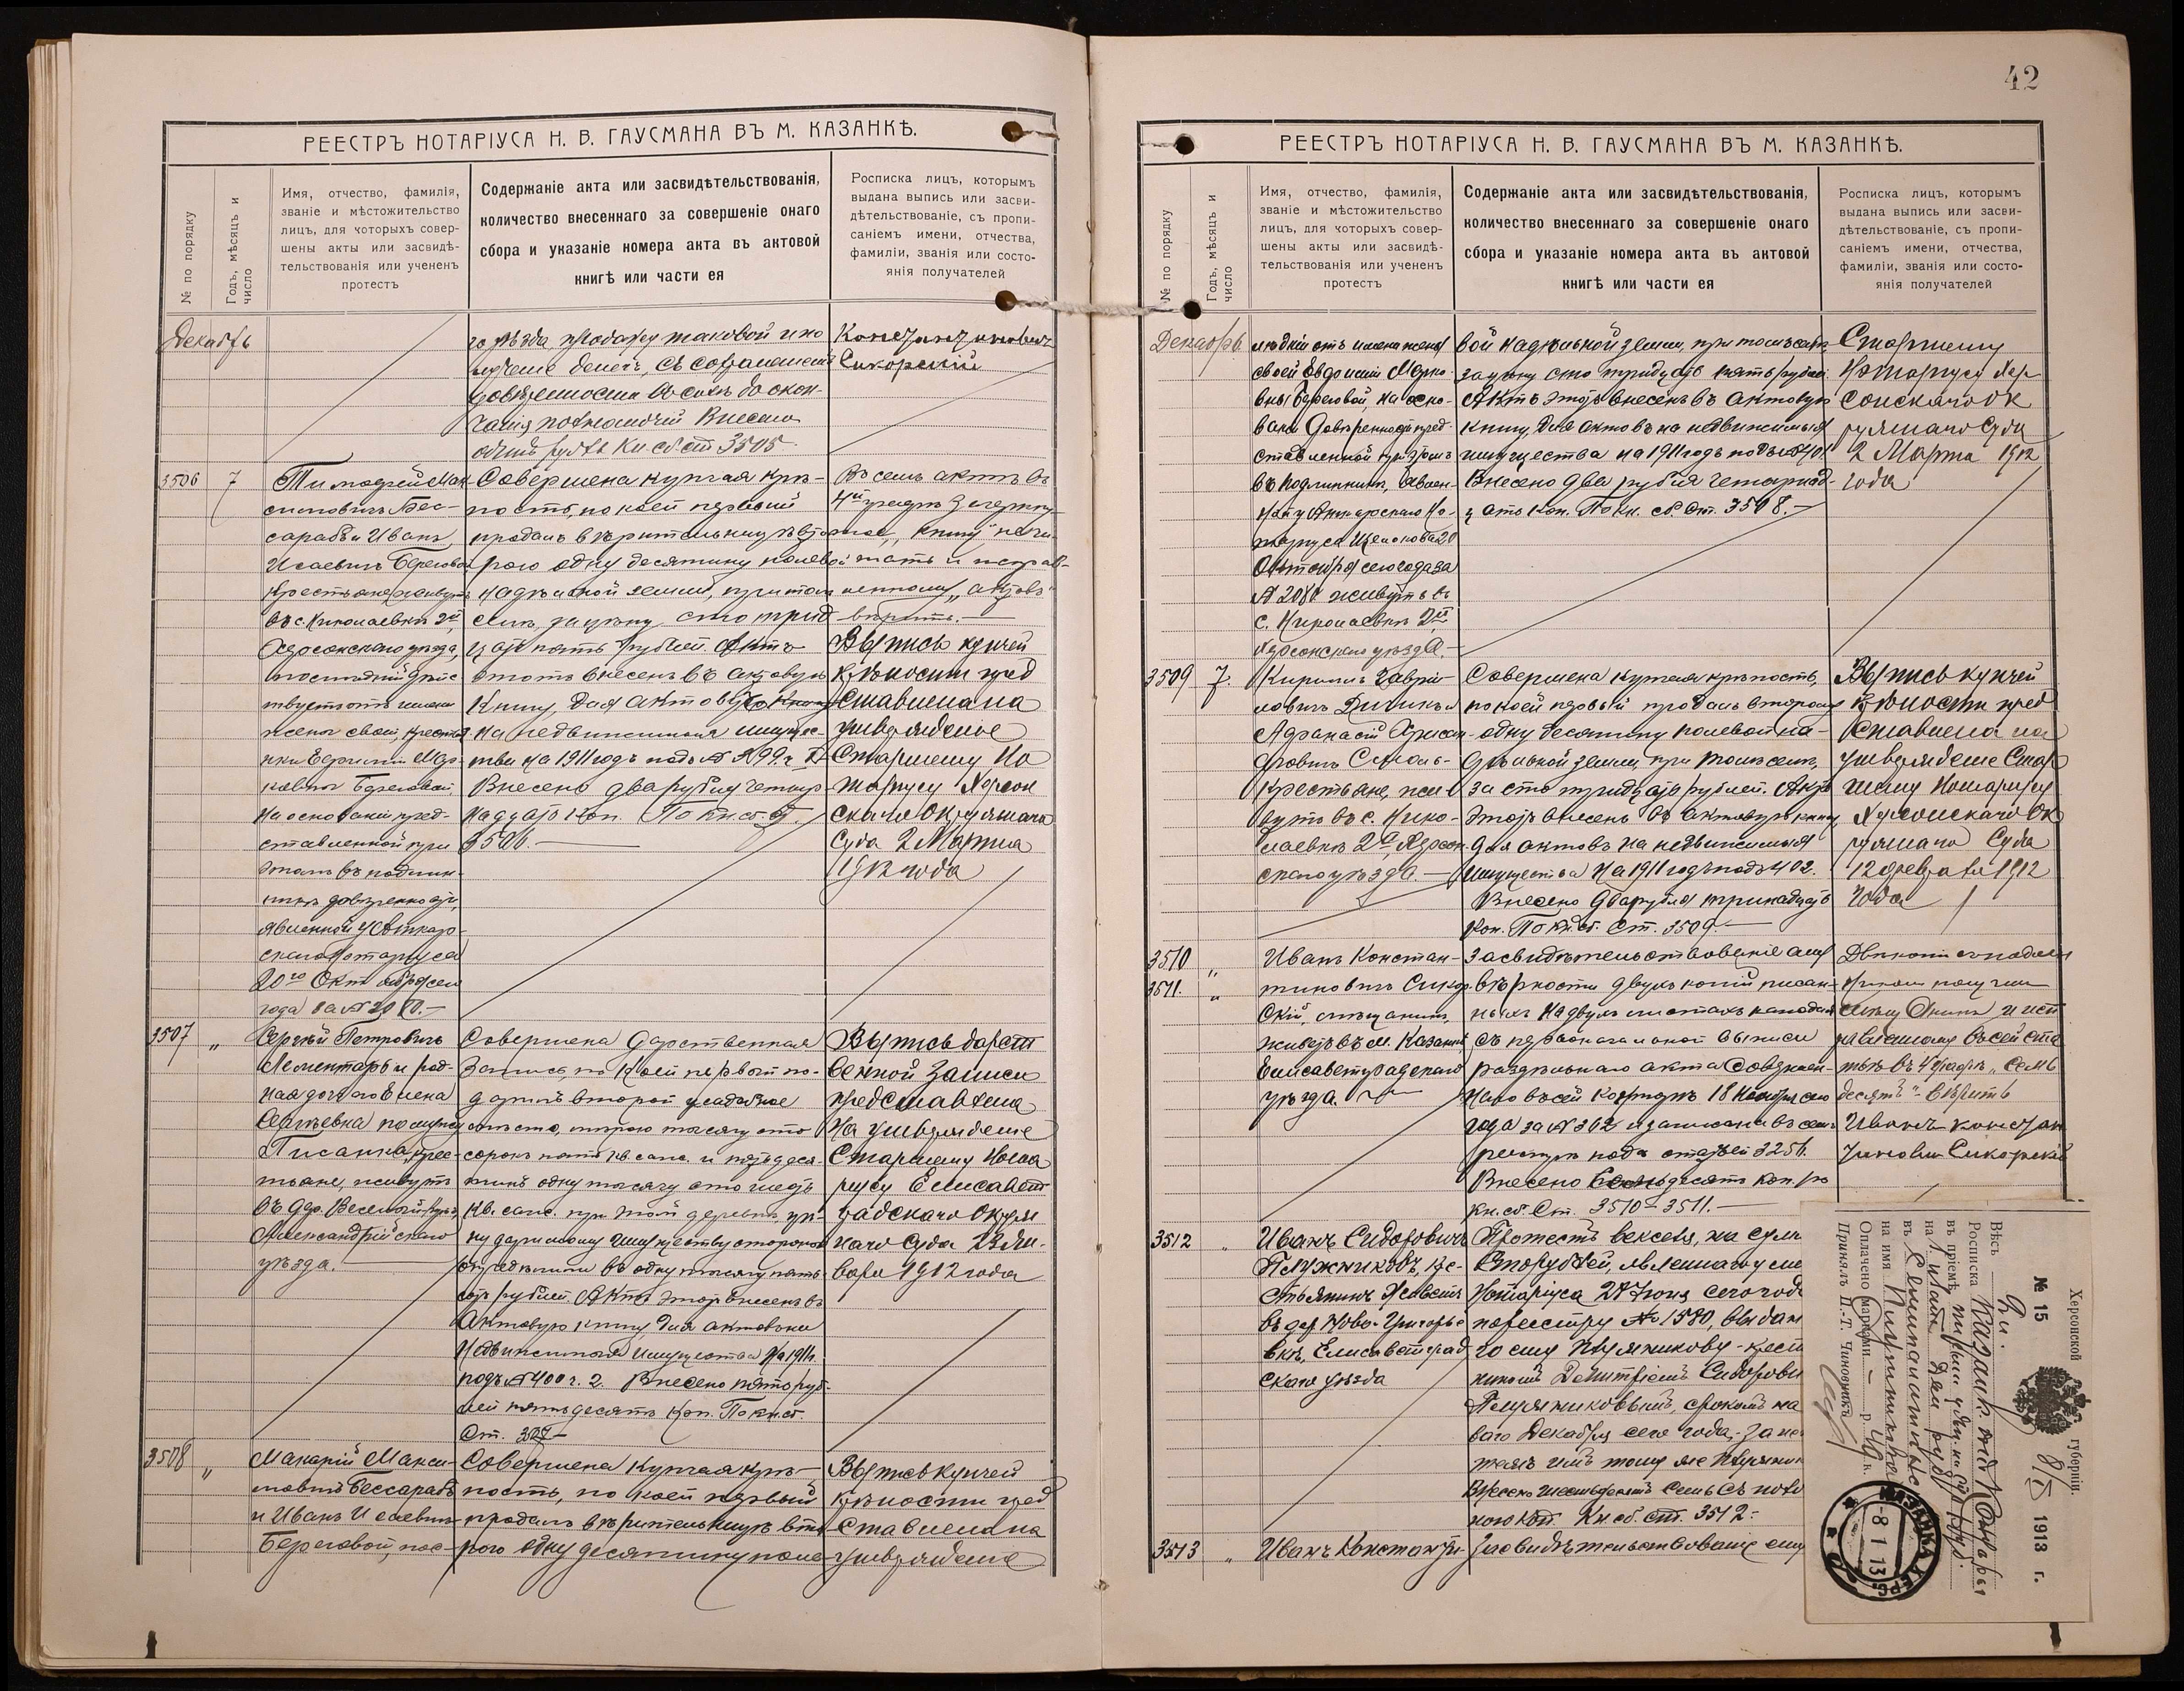 РЕЕСТРЪ НОТАРІУСА Н. В. ГАУСМАНА ВЪ М. КАЗАНКѢ.
№ по порядку
Годъ, мѣсяцъ и
число
Имя, отчество, фамилія,
званіе и мѣстожительство
лицъ, для которыхъ совер-
шены акты или засвидѣ-
тельствованія или учененъ
протестъ
Содержаніе акта или засвидѣтельствованія,
количество внесеннаго за совершеніе онаго
сбора и указаніе номера акта въ актовой
книгѣ или части ея
Росписка лицъ, которымъ
выдана выпись или засви-
дѣтельствованіе, съ пропи-
саніемъ имени, отчества,
фамиліи, званія или состо-
янія получателей
Декабрь
го уѣзда, продажу таковой и по
лученіе денегъ, съ
довѣренности
Внесено
рубль Кн. сб. ст. 3505
Константиновичъ
Сикорскій
3506 7
Тимофей Мак-
симовичъ Бес-
сарабъ и Иванъ
Исаевичъ Береговой
крестьяне, живутъ
въ с. Николаевкѣ 2й,
Херсонскаго уѣзда,
послѣдній дѣйс
твуетъ отъ имени
жены своей, крестья
нки Мар-
ковны Береговой
на основаніи пред-
ставленной при
этомъ въ подлин-
никѣ довѣренности,
явленной у Аткар-
скаго Нотаріуса
20го Октября сего
года за № 2080.—
Совершена купчая крѣ-
пость, по коей первый
продалъ вѣрительницѣ вто
рого одну десятину полевой
надѣльной земли, при томъ
селѣ, за цѣну сто трид
цать пять рублей. Актъ
этотъ внесенъ въ актовую
Книгу для актовъ
на недвижимыя имущес-
тва на 1911 годъ подъ № 399
Внесено два рубля четыр
надцать коп. По кн. сб. ст.
3506.
Въ семъ актѣ въ
4й графѣ зачеркну-
тое „книгу“ не чи-
тать и исправ-
ленному „актовъ“
вѣрить.—
Выпись купчей
крѣпости пред
ставлена на
утвержденіе
Старшему Но
таріусу Херсон
скаго Окружнаго
Суда 2 Марта
1912 года
3507 „
Сергѣй Петровичъ
Лементарь и род-
ная дочь его Елена
Сергѣевна по мужу
Писанка, крес-
тьяне, живутъ
въ дер. Веселой
Александрійскаго
уѣзда.
Совершена дарственная
Запись, по коей первый по-
дарилъ второй усадебное
мѣсто, мѣрою тысячу сто
сорокъ пять кв. саж. и
одну тысячу сто
кв. саж. при той деревнѣ, цѣ-
ну даримому имуществу стороны
опредѣлили въ одну тысячу пять
сотъ рублей. Актъ этотъ внесенъ въ
Актовую книгу для актовъ на
недвижимыя имущества на 1911 г.
подъ № 400 г. 2. Внесено
лей пятьдесятъ коп. По кн. сб.
Ст.
Выпись дарст
венной Записи
представлена
На утвержденіе
Старшему Нота
ріусу Елисавет
градскаго Окруж
наго Суда 23 Ян-
варя 1912 года
3508 „
Макарій Макси-
мовичъ Бессарабъ
и Иванъ Исаевичъ
Береговой, пос-
Совершена Купчая крѣ-
пость, по коей первый
продалъ вѣрительницѣ вто
рого одну десятину поле-
Выпись Купчей
крѣпости пред
ставлена на
утвержденіе
42
РЕЕСТРЪ НОТАРІУСА Н. В. ГАУСМАНА ВЪ М. КАЗАНКѢ.
№ по порядку
Годъ, мѣсяцъ и
число
Имя, отчество, фамилія,
званіе и мѣстожительство
лицъ, для которыхъ совер-
шены акты или засвидѣ-
тельствованія или учененъ
протестъ
Содержаніе акта или засвидѣтельствованія,
количество внесеннаго за совершеніе онаго
сбора и указаніе номера акта въ актовой
книгѣ или части ея
Росписка лицъ, которымъ
выдана выпись или засви-
дѣтельствованіе, съ пропи-
саніемъ имени, отчества,
фамиліи, званія или состо-
янія получателей
Декабрь
лѣдній отъ имени жены
своей Евдокіи Марко-
вны Береговой, на осно-
ваніи Довѣренности, пред-
ставленной при этомъ
въ подлинникѣ, явлен-
ной у Аткарскаго Но-
таріуса 20
Октября сего года за
№ 2080 живутъ въ
с. Николаевкѣ 2й,
Херсонскаго уѣзда.—
вой надѣльной земли, при томъ селѣ,
за цѣну сто тридцать пять рублей.
Актъ этотъ внесенъ въ актовую
книгу для актовъ на недвижимыя
имущества на 1911 годъ подъ № 401.
Внесено два рубля четырнад-
цать коп. По кн. сб. ст. 3508.—
Старшему
Нотаріусу Хер
сонскаго Ок
ружнаго Суда
2 Марта 1912
года
3509 7.
Кириллъ Гаврі-
ловичъ
Афанасій
Крестьяне, жи-
вутъ въ с. Нико-
лаевкѣ 2й, Херсон-
скаго уѣзда.—
Совершена купчая крѣпость,
по коей первый продалъ второму
одну десятину полевой на-
дѣльной земли, при томъ селѣ,
за сто тридцать рублей. Актъ
этотъ внесенъ въ актовую книгу
для актовъ на недвижимыя
имущества на 1911 годъ подъ № 402.
Внесено два рубля тринадцать
коп. По кн. сб. Ст. 3509.
Выпись купчей
крѣпости пред
ставлена на
утвержденіе Стар
шему Нотаріусу
Херсонскаго Ок
ружнаго Суда
12 февраля 1912
года
3510 „
3511. „
Иванъ Констан-
тиновичъ Сикор-
скій, мѣщанинъ,
живетъ въ м. Казанкѣ,
Елисаветградскаго
уѣзда.
Засвидѣтельствованіе ему
вѣрности двухъ копій писан-
ныхъ на двухъ листахъ каждая
съ первоначальной выписи
раздѣльнаго акта совершен-
наго въ сей конторѣ 18 Ноября сего
года за № 362 и записана въ семъ
реестрѣ подъ статьей 3256.
Внесено десять коп. по
кн. сб. Ст. 3510-3511.—
Двѣ копіи съ подлин
никомъ получилъ
сему и исп
равленному въ сей ста
тьѣ въ 4 графѣ „семь
десятъ“ вѣрить
Иванъ Констан
тиновичъ Сикорскій
3512 „
Иванъ Сидоровичъ
Плужниковъ, кре-
стьянинъ живетъ
въ дер. Ново-Григорье
вкѣ, Елисаветград
скаго уѣзда
Протестъ векселя, на сумму
рублей, явленнаго у сего
Нотаріуса 27 Іюня сего года
по реестру № 1580, выдан
го ему Плужникову - крест
Дмитріемъ Сидорови
Плужниковымъ, срокомъ на
ваго Декабря сего года,- за не
имъ тому же Плужник
Внесено шестьдесятъ семь съ поло
ною коп. Кн. сб. ст. 3512-
3513 „
Иванъ Константи-
Засвидѣтельствованіе ему
Херсонской губерніи.
№ 15 1913 г.
Вѣсъ
Росписка
въ пріемѣ
на
въ
на имя
Оплачено марками р. к.
Принялъ П.-Т. Чиновникъ
КАЗАНКА ХЕРС.
8 1 13